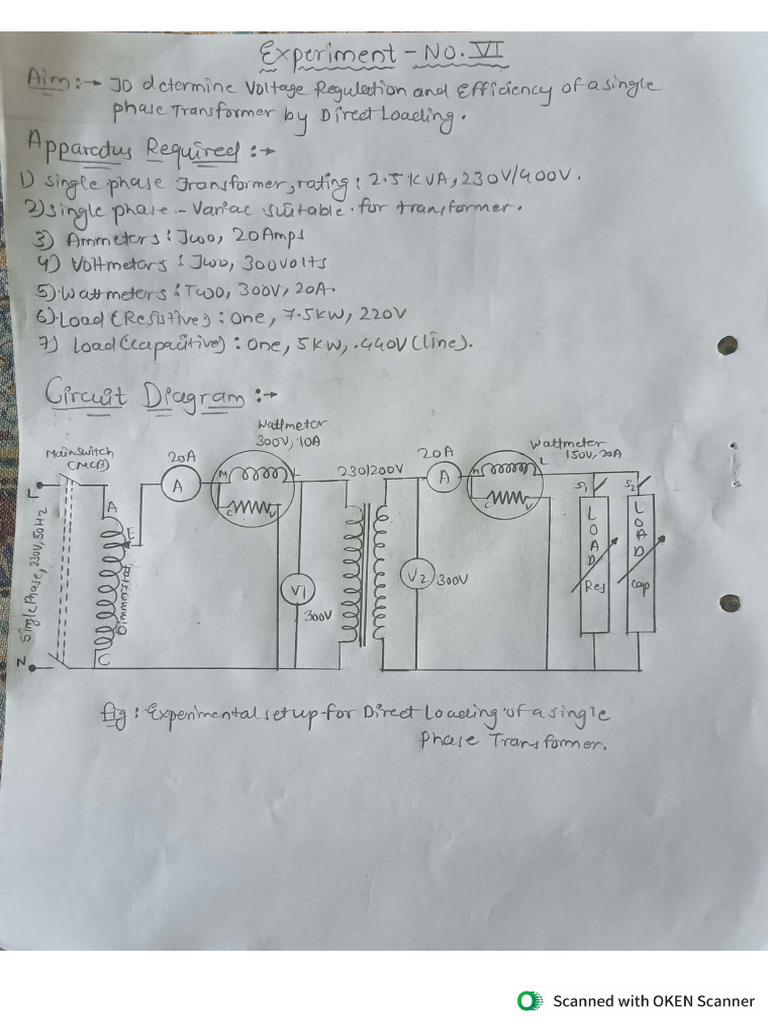 Experiment - NO. VI
Aim :→ To determine Voltage Regulation and Efficiency of a single
phase Transformer by Direct Loading.
Apparatus Required :→
1) single phase Transformer, rating : 2.5 KVA, 230V/400V.
2) single phase - Variac suitable for transformer.
3) Ammeters : Two, 20 Amps
4) Voltmeters : Two, 300volts
5) Wattmeters : Two, 300V, 20A.
6) Load (Resistive) : One, 7.5kw, 220V
7) Load (capacitive) : One, 5 KW, 440V (line).
Circuit Diagram :→
Mainswitch
(MCB)
20A
Wattmeter
300V, 10A
230/200V
20A
Wattmeter
150V, 20A
A
M
L
C
V
A
M
L
C
V
S1
S2
P
A
E
C
N
Single Phase, 230V, 50Hz
Dimmerstat
V1
300V
V2
300V
LOAD
Res
LOAD
Cap
fig : Experimental setup for Direct Loading of a single
Phase Transformer.
Scanned with OKEN Scanner